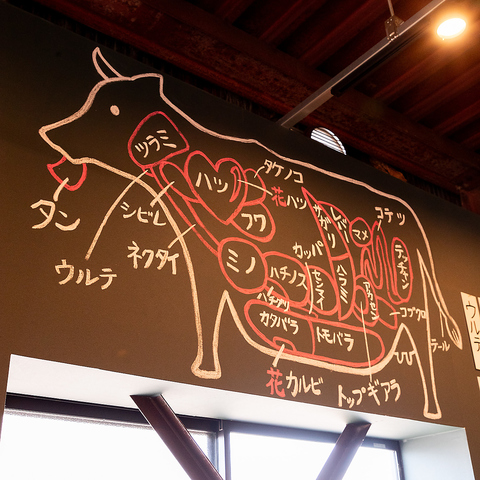 ツラミ
タン
ウルテ
シビレ
ネクタイ
ハツ
タケノコ
花ハツ
フワ
ミノ
ハチノス
ハチクリ
カッパ
センマイ
サガリ
レバー
ハラミ
マメ
コテツ
テッチャン
アカセン
コブクロ
テール
カタバラ
トモバラ
花カルビ
トップギアラ
ウルテ